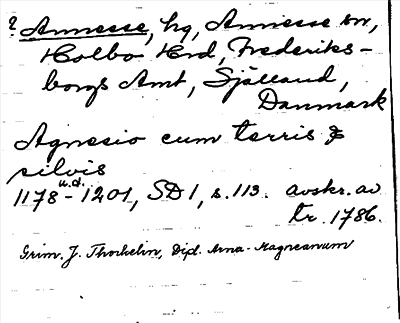 ? Annesse, hg, Annesse sn,
Holbo Hrd, Frederiks-
borgs Amt, Sjælland,
Danmark
Agnesio cum terris &
silvis
u.d.
1178-1201, SD 1, s. 113. avskr. av
tr. 1786.
Grim. J. Thorkelin, Dipl. Arna-Magneanum